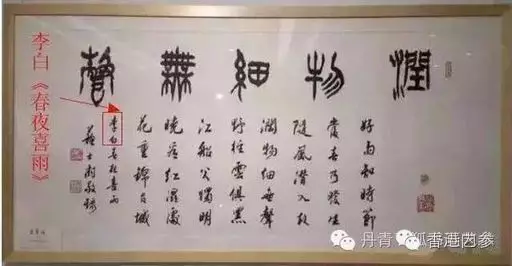 潤物細無聲
好雨知時節
當春乃發生
隨風潛入夜
潤物細無聲
野徑雲俱黑
江船火獨明
曉看紅濕處
花重錦官城
李白春夜喜雨
蘇士澍敬錄
李白《春夜喜雨》
丹青
狐香港内参